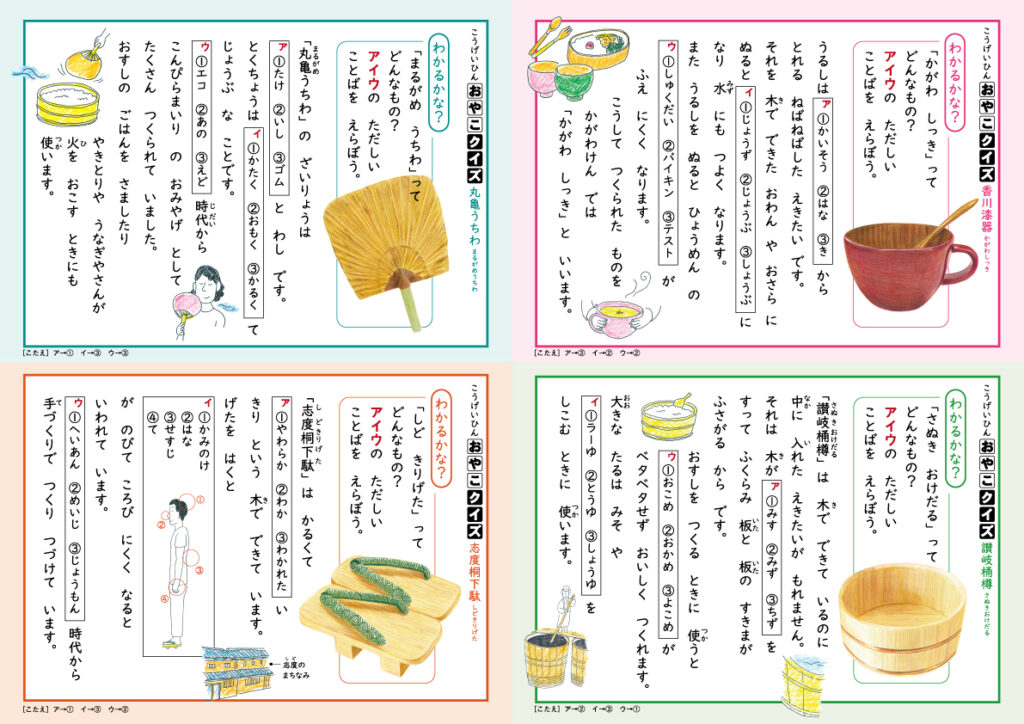 こうげいひん おやこクイズ 丸亀うちわ まるがめうちわ
わかるかな?
「まるがめ うちわ」って
どんなもの?
アイウの ただしい
ことばを えらぼう。
まるがめ
「丸亀うちわ」の ざいりょうは
ア ①たけ ②いし ③ゴム と わし です。
とくちょうは イ ①かたく ②おもく ③かるく て
じょうぶ な ことです。
じだい
ウ ①エコ ②あの ③えど 時代から
こんぴらまいり の おみやげ として
たくさん つくられて いました。
おすしの ごはんを さましたり
やきとりや うなぎやさんが
ひ
火を おこす ときにも
つか
使います。
[こたえ] ア→① イ→③ ウ→③
こうげいひん おやこクイズ 香川漆器 かがわしっき
わかるかな?
「かがわ しっき」って
どんなもの?
アイウの ただしい
ことばを えらぼう。
うるしは ア ①かいそう ②はな ③き から
とれる ねばねばした えきたいです。
き
それを 木で できた おわん や おさら に
ぬると イ ①じょうず ②じょうぶ ③しょうぶ に
みず
なり 水 にも つよく なります。
また うるしを ぬると ひょうめん の
ウ ①しゅくだい ②バイキン ③テスト が
ふえ にくく なります。
こうして つくられた ものを
かがわけん では
「かがわ しっき」と いいます。
[こたえ] ア→③ イ→② ウ→②
こうげいひん おやこクイズ 志度桐下駄 しどきりげた
わかるかな?
「しど きりげた」って
どんなもの?
アイウの ただしい
ことばを えらぼう。
しどきりげた
「志度桐下駄」は かるくて
ア ①やわらか ②わか ③わかれた い
き
きり という 木で できて います。
げたを はくと
イ ①かみのけ
②はな
③せすじ
④て
①
②
③
④
が のびて ころび にくく なると
いわれて います。
ウ ①へいあん ②めいじ ③じょうもん 時代から
て
手づくりで つくり つづけて います。
しど
志度の
まちなみ
[こたえ] ア→① イ→③ ウ→②
こうげいひん おやこクイズ 讃岐桶樽 さぬきおけだる
わかるかな?
「さぬき おけだる」って
どんなもの?
アイウの ただしい
ことばを えらぼう。
さぬきおけだる
「讃岐桶樽」は 木で できて いるのに
なか い
中に 入れた えきたいが もれません。
き
それは 木が ア ①みす ②みず ③ちず を
いた いた
すって ふくらみ 板と 板の すきまが
ふさがる から です。
つか
おすしを つくる ときに 使うと
ウ ①おこめ ②おかめ ③よこめ が
ベタベタせず おいしく つくれます。
おお
大きな たるは みそ や
イ ①ラーゆ ②とうゆ ③しょうゆ を
つか
しこむ ときに 使います。
[こたえ] ア→② イ→③ ウ→①